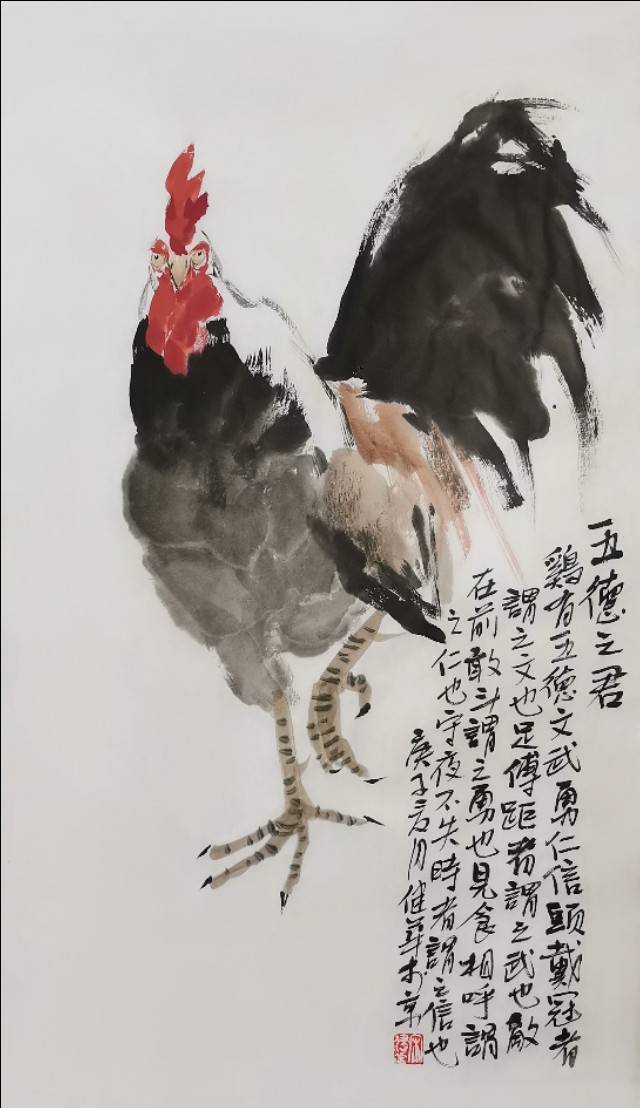 五德之君
鷄有五德文武勇仁信頭戴冠者
謂之文也足傅距者謂之武也敵
在前敢斗謂之勇也見食相呼謂
之仁也守夜不失時者謂之信也
庚子月華於京